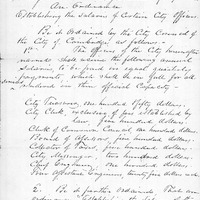 An Ordinance
Establishing the Salaries of Certain City Officers
Be it Ordained by the City Council of
the City of Cambridge as follows:
1st The Officers of the City hereinafter
named shall receive the following annual
Salaries, to be paid in equal quarterly
payments, which shall be in full for all
services in their Official Capacity.
City Treasurer, one hundred & fifty dollars.
City Clerk, exclusive of fees established by
law, five hundred dollars.
Clerk of Common Council one hundred dollars.
Board of Assessors five hundred dollars.
Collector of Taxes, five hundred dollars.
City Messenger, two hundred dollars.
Chief Engineer, one hundred dollars.
Four Assistant Engineers, twenty five dollars each
2. Be it further ordained, that an